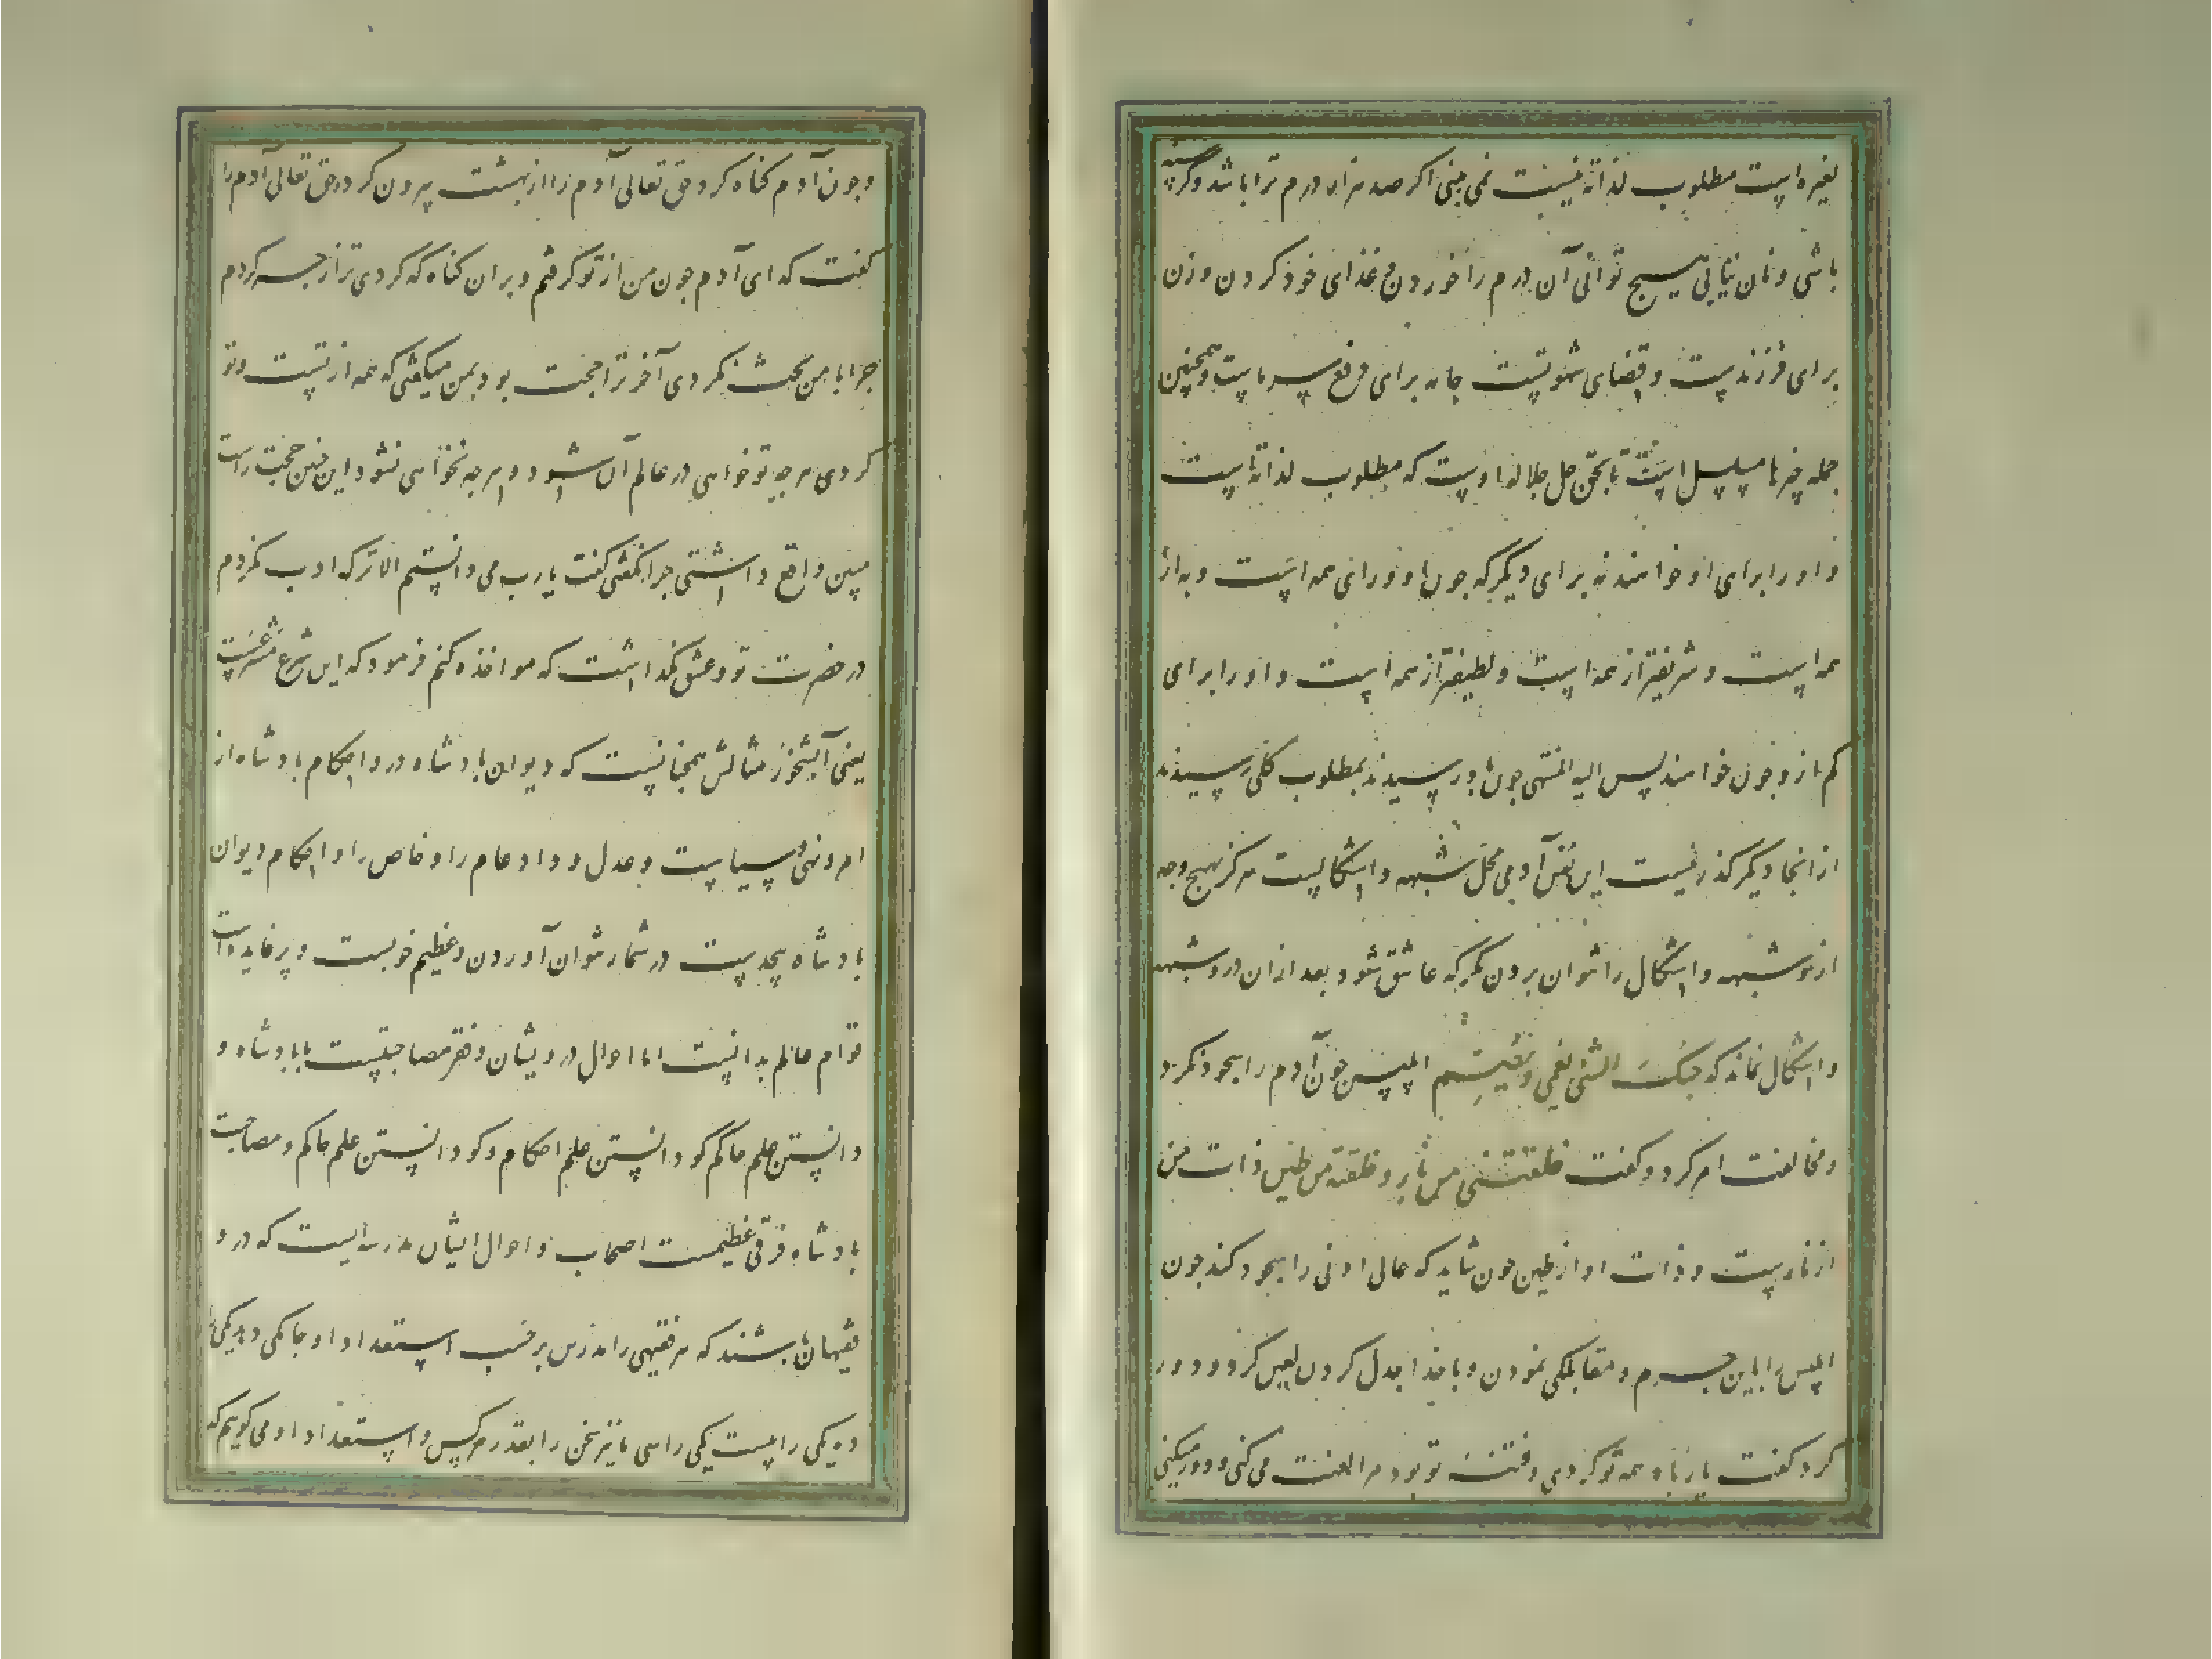 لغیره است مطلوب لذاته نیست نمی بینی اکر صد هزار درم ترا باشد و کرسنه
باشی و نان نیابی هیچ توانی آن درم را خوردن و غذای خود کردن و زن
برای فرزندست و قضای شهوتست جامه برای دفع سرماست و همچنین
جمله چیزها مسلسل است تا بحق جل جلاله اوست که مطلوب لذاته است
و او را برای او خواهند نه برای دیکر که چون او ورای همه است و به از
همه است و شریفتر از همه است و لطیفتر از همه است و او را برای
کم ازو چون خواهند پس الیه المنتهی چون باو رسیدند بمطلوب کلی رسیدند
از آنجا دیکر کذر نیست این نفس آدمی محل شبهه و اشکالست هرکز بهیچ وجه
ازو شبهه و اشکال را نتوان بردن مکر که عاشق شود بعد از آن درو شبهه
و اشکال نماند که حبک الشئ یعمی و یصم ابلیس چون آدم را سجود نکرد
و مخالفت امر کرد و کفت خلقتنی من نار و خلقته من طین ذات من
از نارست و ذات او از طین چون شاید که عالی ادنی را سجود کند چون
ابلیس را باین جرم و مقابلکی نمودن و با خدا جدل کردن لعین کرد و دور
کرد کفت یا رب آه همه تو کردی و فتنه تو بود مرا لعنت می کنی و دور میکنی
و چون آدم کناه کرد حق تعالی آدم را از بهشت بیرون کرد حق تعالی آدم را
کفت که ای آدم چون من از تو کرفتم و بر آن کناه که کردی ترا زجر کردم
چرا با من بحث نکردی آخر ترا حجت بود بمن میکفتی که همه از تست و تو
کردی هرچه تو خواهی در عالم آن شود و هرچه نخواهی نشود این چنین حجت راست
مبین واقع داشتی چرا نکفتی کفت یا رب می دانستم الا ترک ادب نکردم
در حضرت تو و عشق نکذاشت که مواخذه کنم فرمود که این شرع مشرعست
یعنی آبشخور مثالش همچنانست که دیوان پادشاه درو احکام پادشاه از
امر و نهی و سیاست و عدل و داد عام را و خاص را و احکام دیوان
پادشاه بیحدست در شمار نتوان آوردن و عظیم خوبست و پر فایده است
قوام عالم بدانست اما احوال درویشان و فقر مصاحبتست با پادشاه و
دانستن علم حاکم کو دانستن علم احکام و کو دانستن علم حاکم و مصاحبت
پادشاه فرقی عظیمست اصحاب و احوال ایشان مدرسه ایست که درو
فقیهان باشند که هر فقیهی را مدرس بر حسب استعداد او جامکی دهد یکی را
ده یکی را بیست یکی را سی ما نیز سخن را بقدر هر کس و استعداد او می کوییم که